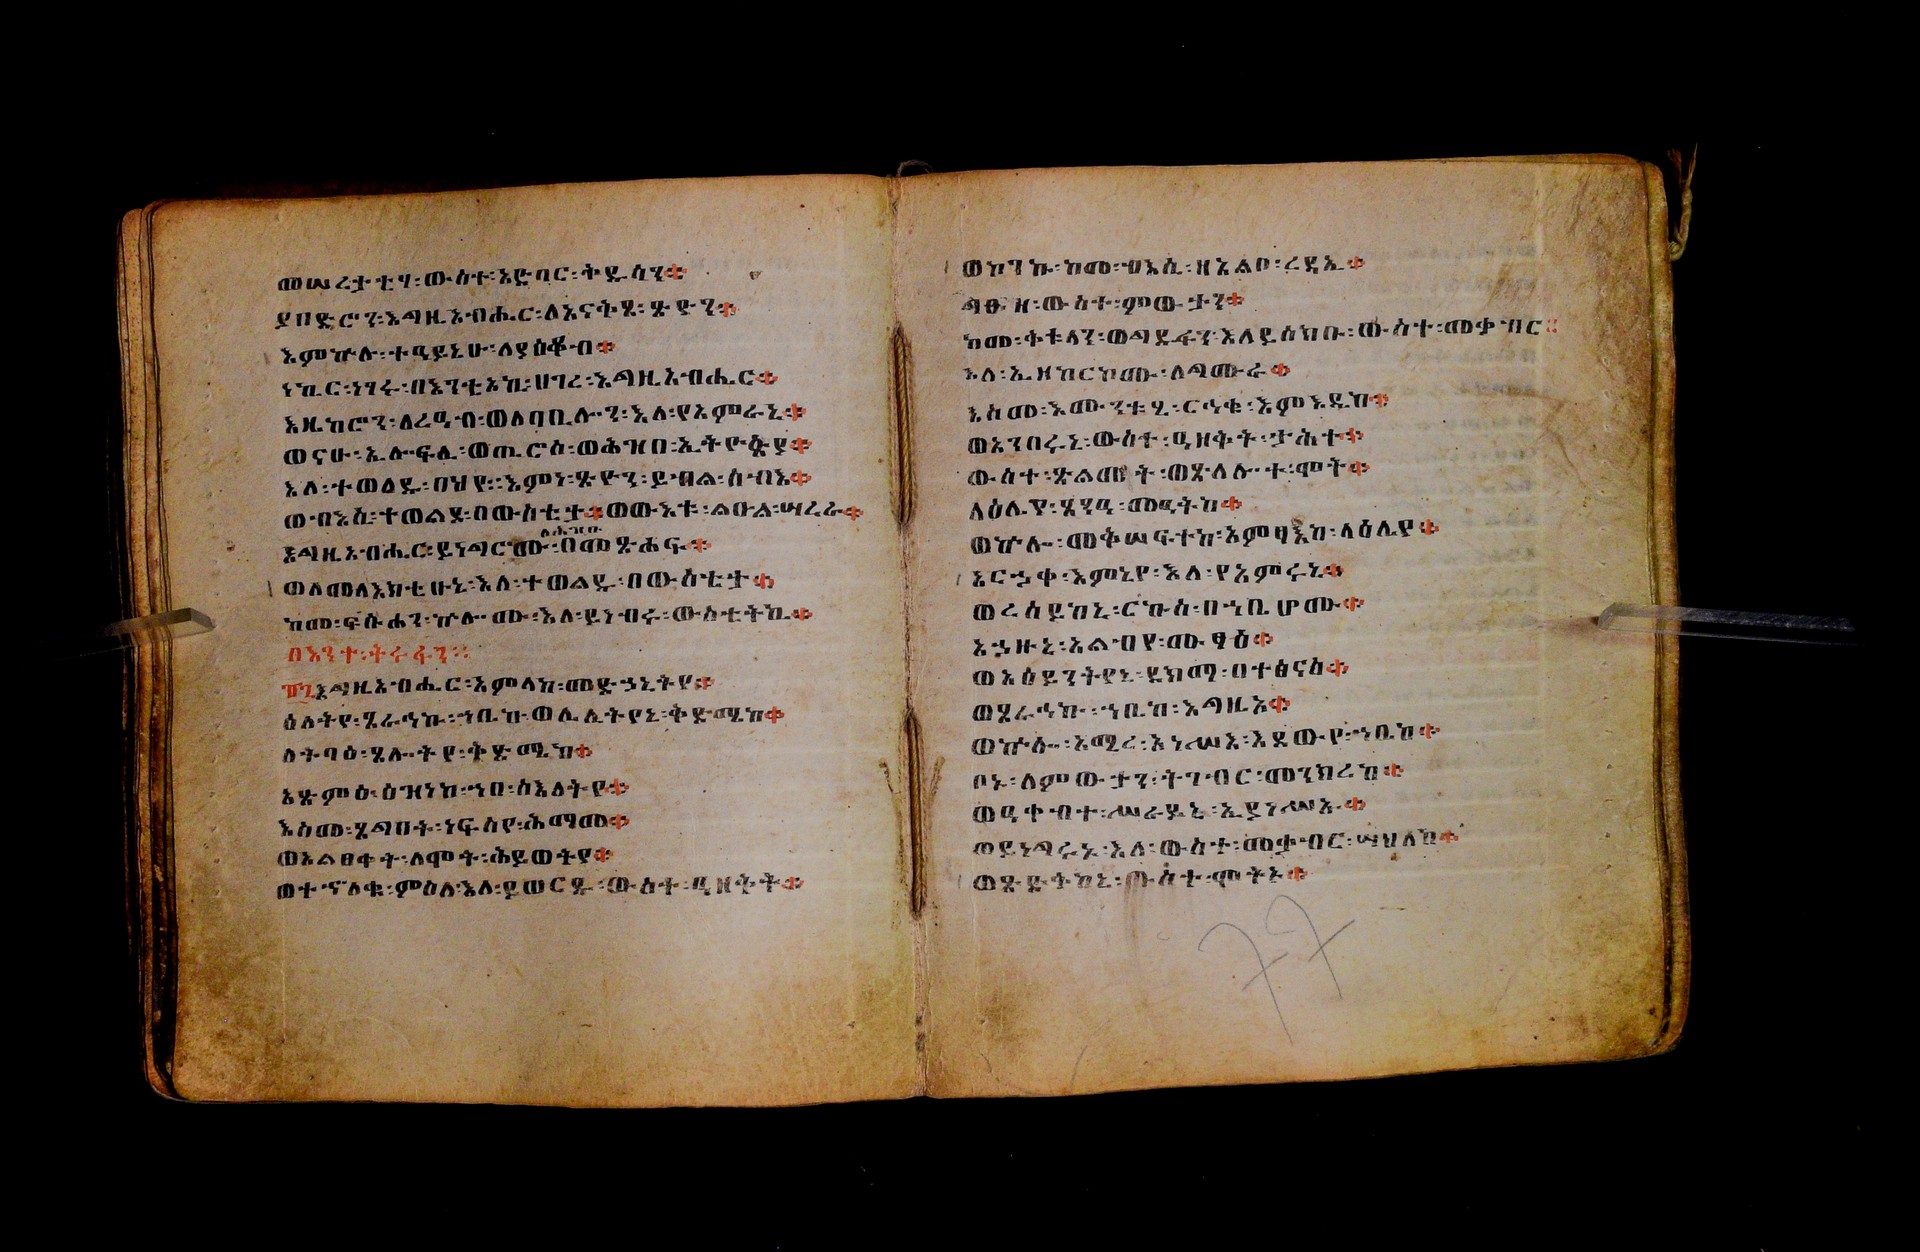 መሠረታቲሃ፡ውስተ፡አድባር፡ቅዱሳን።
ያበድሮን፡እግዚአብሔር፡ለአናቅጸ፡ጽዮን።
እምኵሉ፡ተዓይኒሁ፡ለያዕቆብ።
ነኪር፡ነገሩ፡በእንቲአኪ፡ሀገረ፡እግዚአብሔር።
እዜከሮን፡ለረዓብ፡ወለባቢሎን፡እለ፡የአምራኒ።
ወናሁ፡ኢሎፍሊ፡ወጢሮስ፡ወሕዝበ፡ኢትዮጵያ።
እለ፡ተወልዱ፡በህየ፡እምነ፡ጽዮን፡ይብል፡ሰብእ።
ወብእሲ፡ተወልደ፡በውስቴታ።ወውእቱ፡ልዑል፡ሣረራ።
ለሕዝቡ
እግዚአብሔር፡ይነግሮሙ፡በመጽሐፍ።
ወለመለእክቲሁኒ፡እለ፡ተወልዱ፡በውስቴታ።
ከመ፡ፍሡሐን፡ኵሎሙ፡እለ፡ይነብሩ፡ውስቴትኪ።
በእንተ፡ትሩፋን።
፹፯እግዚአብሔር፡አምላከ፡መድኃኒትየ።
ዕለትየ፡ጸራኅኩ፡ኀቤከ፡ወሌሊትየኒ፡ቅድሜከ።
ለትባዕ፡ጸሎትየ፡ቅድሜከ።
አጽምዕ፡ዕዝነከ፡ኀበ፡ስእለትየ።
እስመ፡ጸግበት፡ነፍስየ፡ሕማመ።
ወአልጸቀት፡ለሞት፡ሕይወትየ።
ወተኈለቁ፡ምስለ፡እለ፡ይወርዱ፡ውስተ፡ዓዘቅት።
ወኮንኩ፡ከመ፡ብእሲ፡ዘአልቦ፡ረዳኢ።
ግዑዘ፡ውስተ፡ምውታን።
ከመ፡ቅቱላን፡ወግዱፋን፡እለ፡ይሰክቡ፡ውስተ፡መቃብር።
እለ፡ኢዘከርኮሙ፡ለግሙራ።
እስመ፡እሙንቱሂ፡ርኅቁ፡እምእዴከ።
ወአንበሩኒ፡ውስተ፡ዓዘቅት፡ታሕተ።
ውስተ፡ጽልመት፡ወጽላሎተ፡ሞት።
ላዕሌየ፡ጸንዓ፡መዓትከ።
ወኵሎ፡መቅሠፍተከ፡አምጻእከ፡ላዕሌየ።
አርኃቀ፡እምኔየ፡እለ፡የአምሩኒ።
ወረሰይከኒ፡ርኩሰ፡በኀቤሆሙ።
አኃዙኒ፡አልብየ፡ሙፃዕ።
ወአዕይንትየኒ፡ደክማ፡በተፅናስ።
ወጸራኅኩ፡ኀቤከ፡እግዚኦ።
ወኵሎ፡አሚረ፡አነሣእ፡እደውየ፡ኀቤከ።
ቦኑ፡ለምውታን፡ትገብር፡መንክረከ።
ወዓቀብተ፡ሥራይኒ፡ኢያነሥኡ።
ወይነግሩኑ፡እለ፡ውስተ፡መቃብር፡ሣህለከ።
ወጽድቅከኒ፡ውስተ፡ሞትኑ።
77